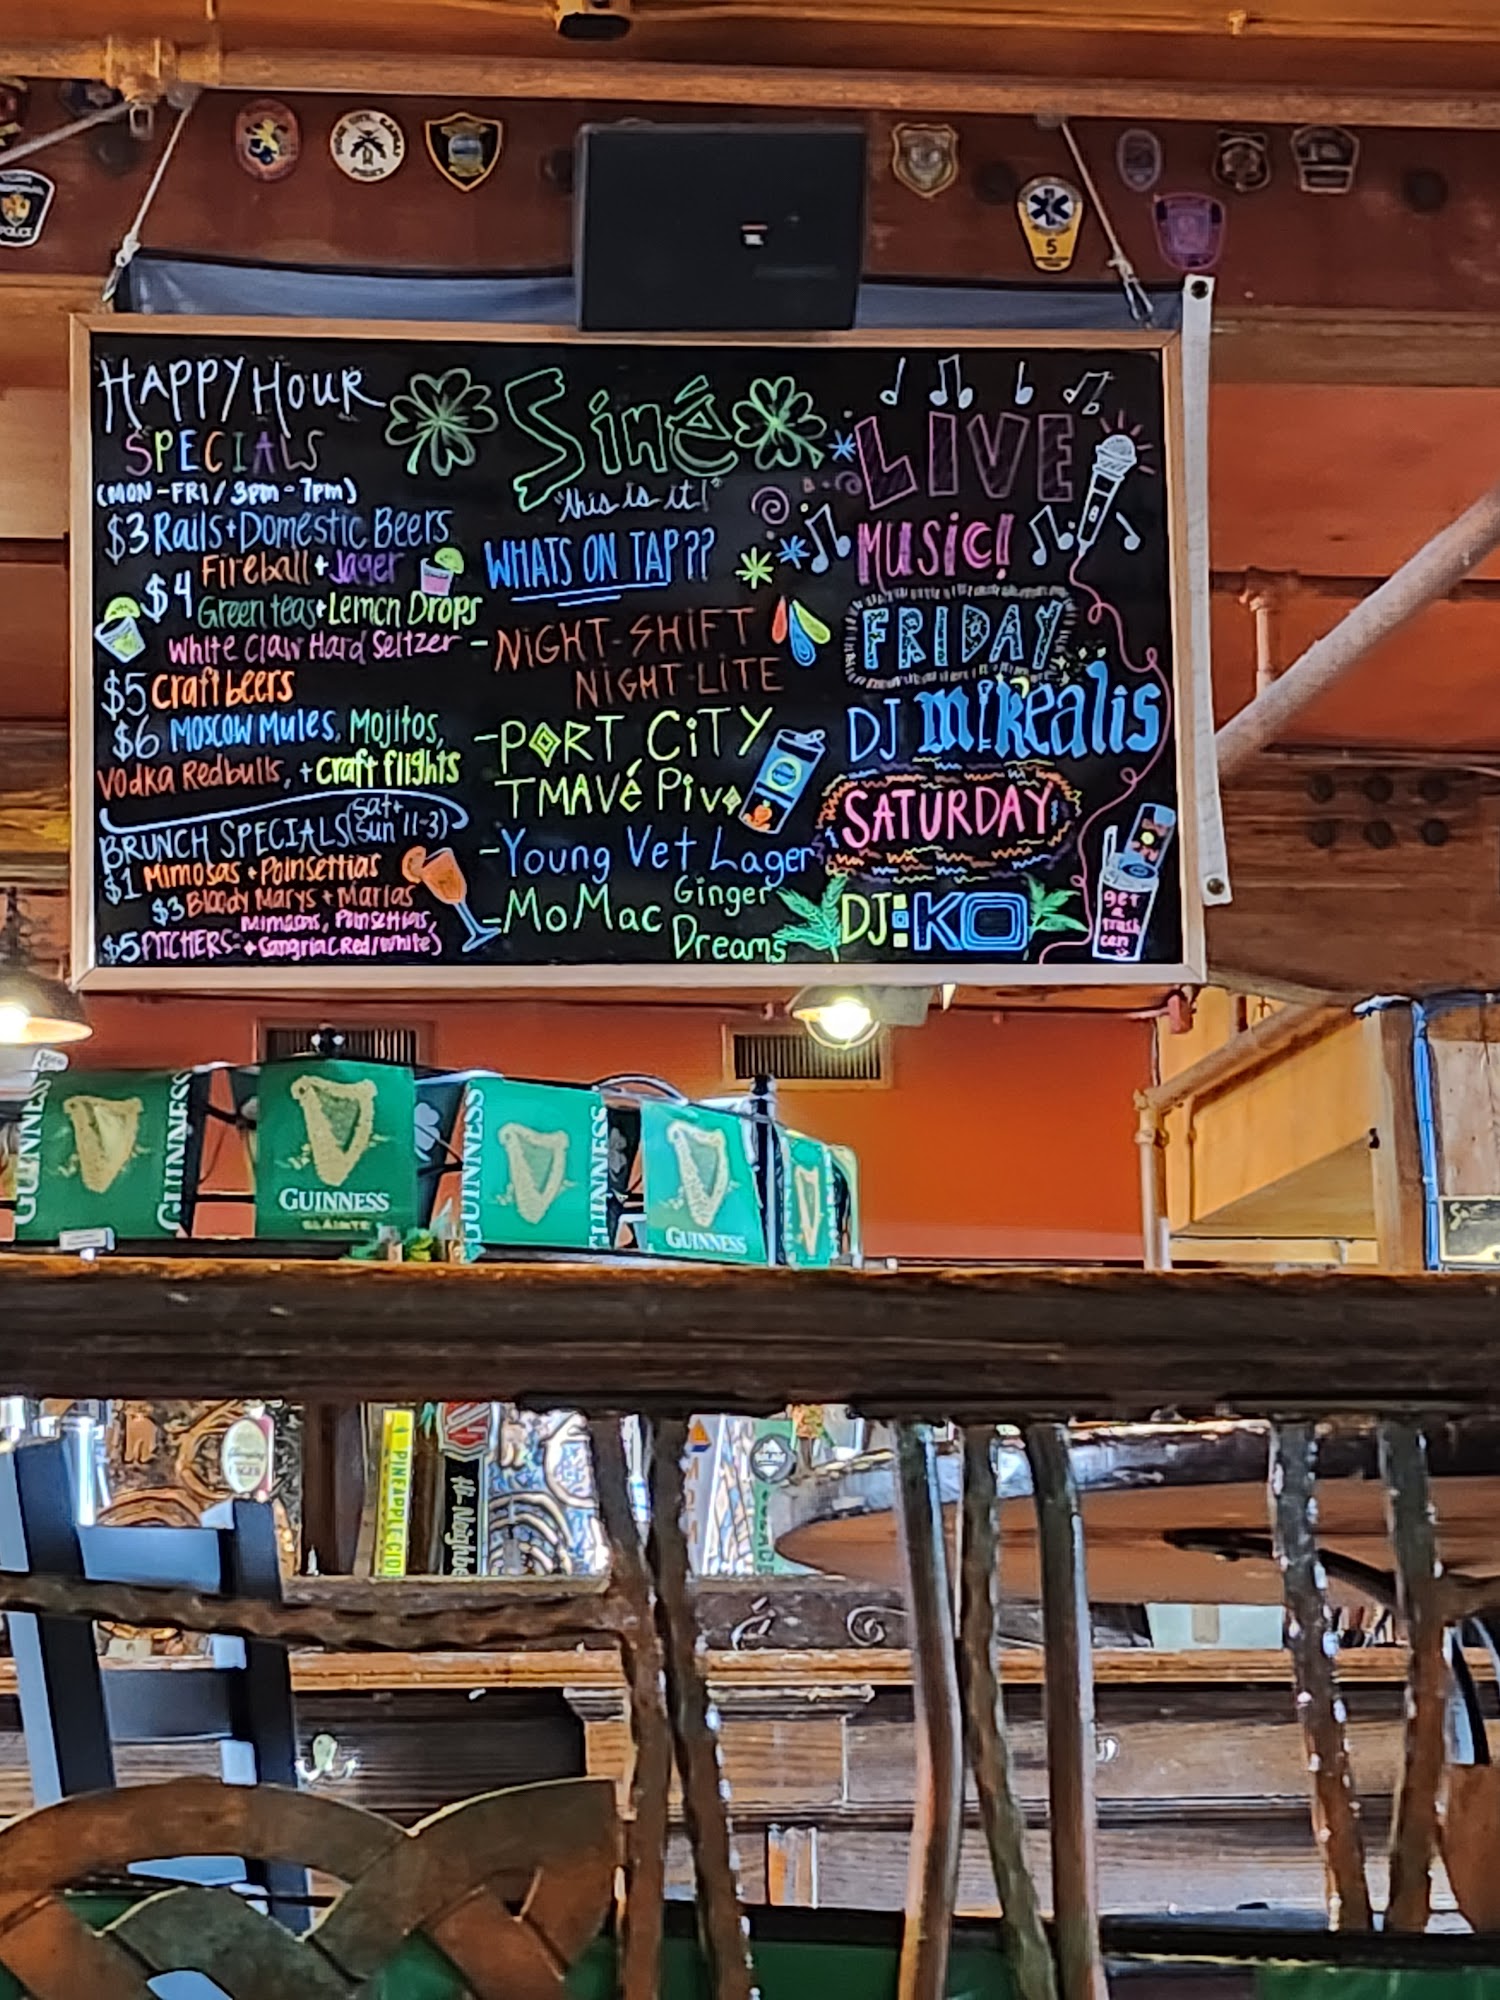 HAPPY HOUR
SPECIALS
(MON-FRI / 3pm-7pm)
$3 Rails + Domestic Beers
$4 Fireball + Jager
Green teas + Lemon Drops
White Claw Hard Seltzer
$5 Craft beers
$6 Moscow Mules, Mojitos,
Vodka Redbulls, + craft flights
BRUNCH SPECIALS (sat + sun 11-3)
$1 Mimosas + Poinsettias
$3 Bloody Marys + Marias
$5 PITCHERS: Mimosas, Poinsettias,
+ Sangria (Red/White)
Siné
"this is it!"
WHATS ON TAP??
- NiGHT-SHiFT
NiGHT-LiTE
- PORT CiTY
TMAVé Pivo
- Young Vet Lager
- MoMac Ginger
Dreams
LIVE
MUSiC!
FRIDAY
DJ mikealis
SATURDAY
DJ:KO
get
a
trash
can
POLICE
POLICE
5
JBL
GUINNESS
GUINNESS
GUINNESS
SLÁINTE
GUINNESS
GUINNESS
GUINNESS
LAGER
PINEAPPLE CID
Hi-Neighbo